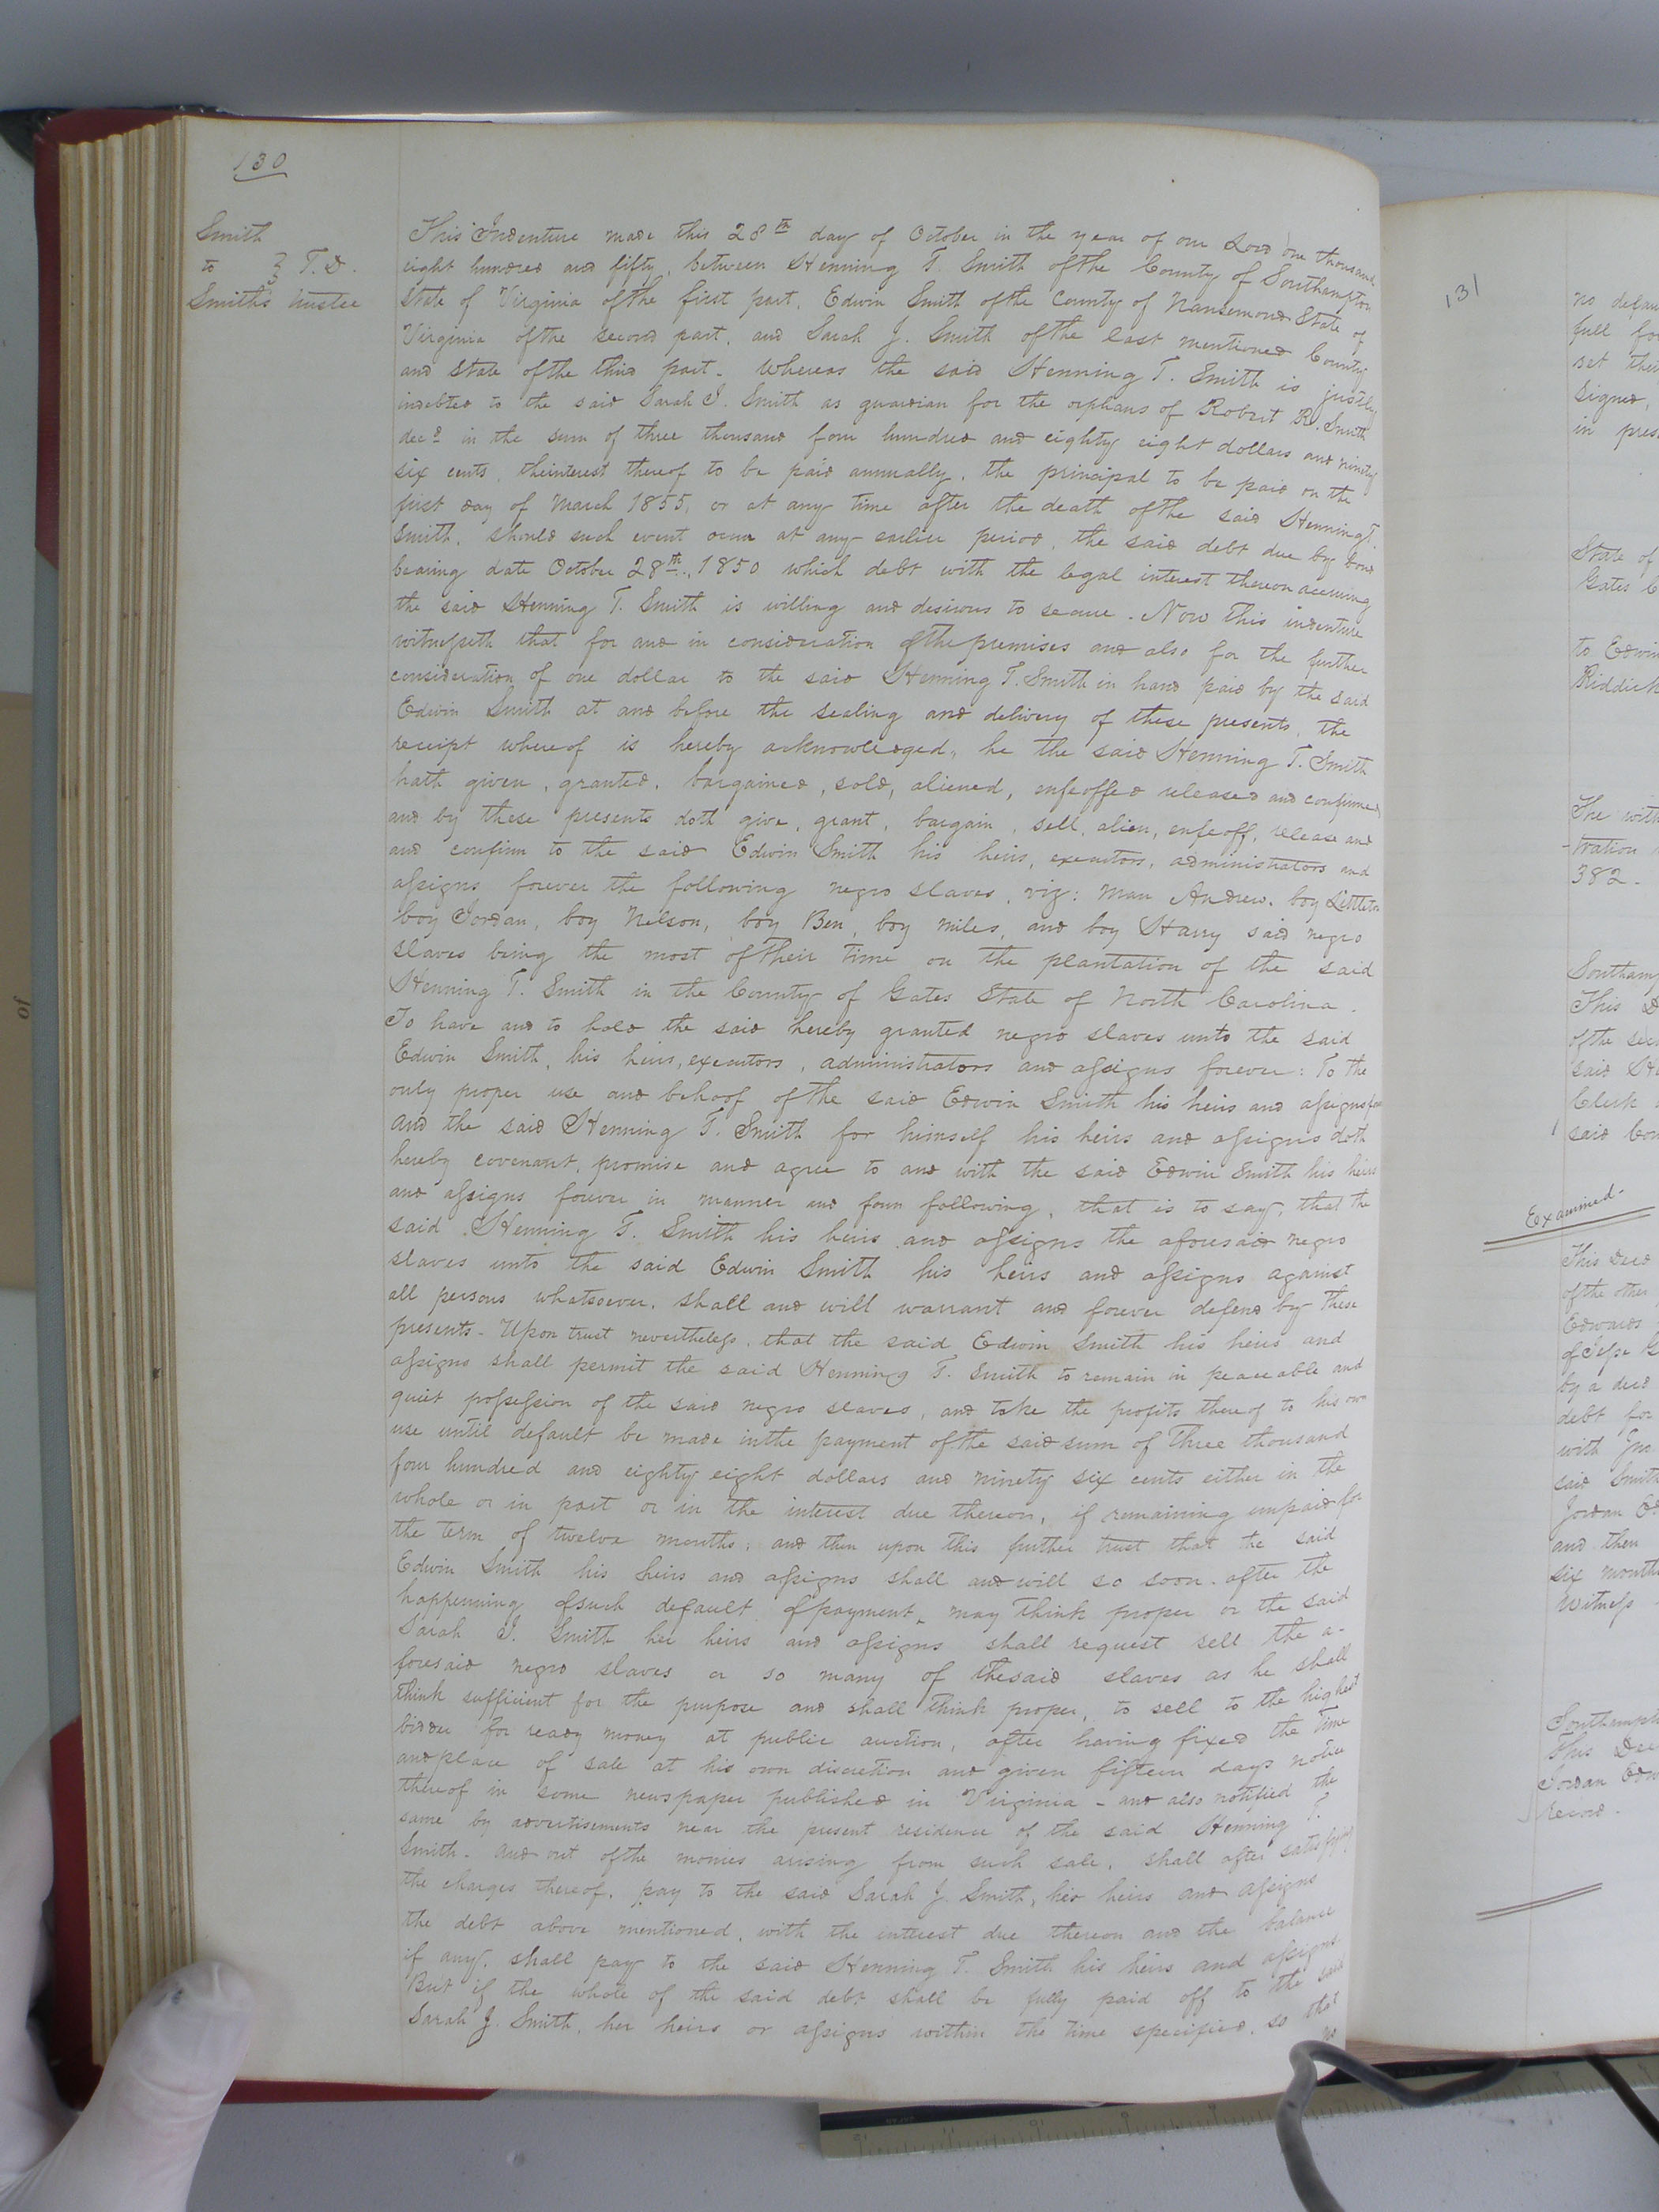 130
Smith
to } T. D.
Smith's trustee
This Indenture made this 28th day of October in the year of our Lord one thousand
eight hundred and fifty, between Henning T. Smith of the County of Southampton
State of Virginia of the first part, Edwin Smith of the County of Nansemond State of
Virginia of the second part, and Sarah J. Smith of the last mentioned County
and State of the third part. Whereas the said Henning T. Smith is justly
indebted to the said Sarah J. Smith as guardian for the orphans of Robert R. Smith
decd in the sum of three thousand four hundred and eighty eight dollars and ninety
six cents, the interest thereof to be paid annually, the principal to be paid on the
first day of March 1855, or at any time after the death of the said Henning T.
Smith, should such event occur at any earlier period, the said debt due by bond
bearing date October 28th, 1850 which debt with the legal interest thereon accruing
the said Henning T. Smith is willing and desirous to secure. Now this indenture
witnesseth that for and in consideration of the premises and also for the further
consideration of one dollar to the said Henning T. Smith in hand paid by the said
Edwin Smith at and before the sealing and delivery of these presents, the
receipt whereof is hereby acknowledged, he the said Henning T. Smith
hath given, granted, bargained, sold, aliened, enfeoffed released and confirmed
and by these presents doth give, grant, bargain, sell, alien, enfeoff, release and
and confirm to the said Edwin Smith his heirs, executors, administrators and
assigns forever the following negro slaves, viz: man Andrew, boy Littleton
boy Jordan, boy Nelson, boy Ben, boy Miles, and boy Harry said negro
slaves being the most of their time on the plantation of the said
Henning T. Smith in the County of Gates State of North Carolina.
To have and to hold the said hereby granted negro slaves unto the said
Edwin Smith, his heirs, executors, administrators and assigns forever: To the
only proper use and behoof of the said Edwin Smith his heirs and assigns
and the said Henning T. Smith for himself his heirs and assigns doth
hereby covenant, promise and agree to and with the said Edwin Smith his heirs
and assigns forever in manner and form following, that is to say, that the
said Henning T. Smith his heirs and assigns the aforesaid negro
slaves unto the said Edwin Smith his heirs and assigns against
all persons whatsoever, shall and will warrant and forever defend by these
presents. Upon trust nevertheless, that the said Edwin Smith his heirs and
assigns shall permit the said Henning T. Smith to remain in peaceable and
quiet possession of the said negro slaves, and take the profits thereof to his own
use until default be made in the payment of the said sum of Three thousand
four hundred and eighty eight dollars and ninety six cents either in the
whole or in part or in the interest due thereon, if remaining unpaid for
the term of twelve months; and then upon this further trust that the said
Edwin Smith his heirs and assigns shall and will so soon after the
happenning of such default of payment, may think proper or the said
Sarah J. Smith her heirs and assigns shall request sell the a-
foresaid negro slaves or so many of the said slaves as he shall
think sufficient for the purpose and shall think proper, to sell to the highest
bidder for ready money at public auction, after having fixed the time
and place of sale at his own discretion and given fifteen days notice
thereof in some newspaper published in Virginia - and also notified the
same by advertisements near the present residence of the said Henning T.
Smith. And out of the monies arising from such sale, shall after satisfying
the charges thereof, pay to the said Sarah J. Smith, her heirs and assigns
the debt above mentioned, with the interest due thereon and the balance
if any, shall pay to the said Henning T. Smith his heirs and assigns
But if the whole of the said debt shall be fully paid off to the said
Sarah J. Smith, her heirs or assigns within the time specified, so that
no
131
full
set
Signed,
in
State of
Gates
to Edwin
Riddick
The
382.
Southamp
This
of the
said
Clerk
said
Examined.
This Deed
of the other
Edwards
by a deed
debt for
with
said Smith
Jordan
and then
six months
Witness
Southampt
This
Jordan
record.
of